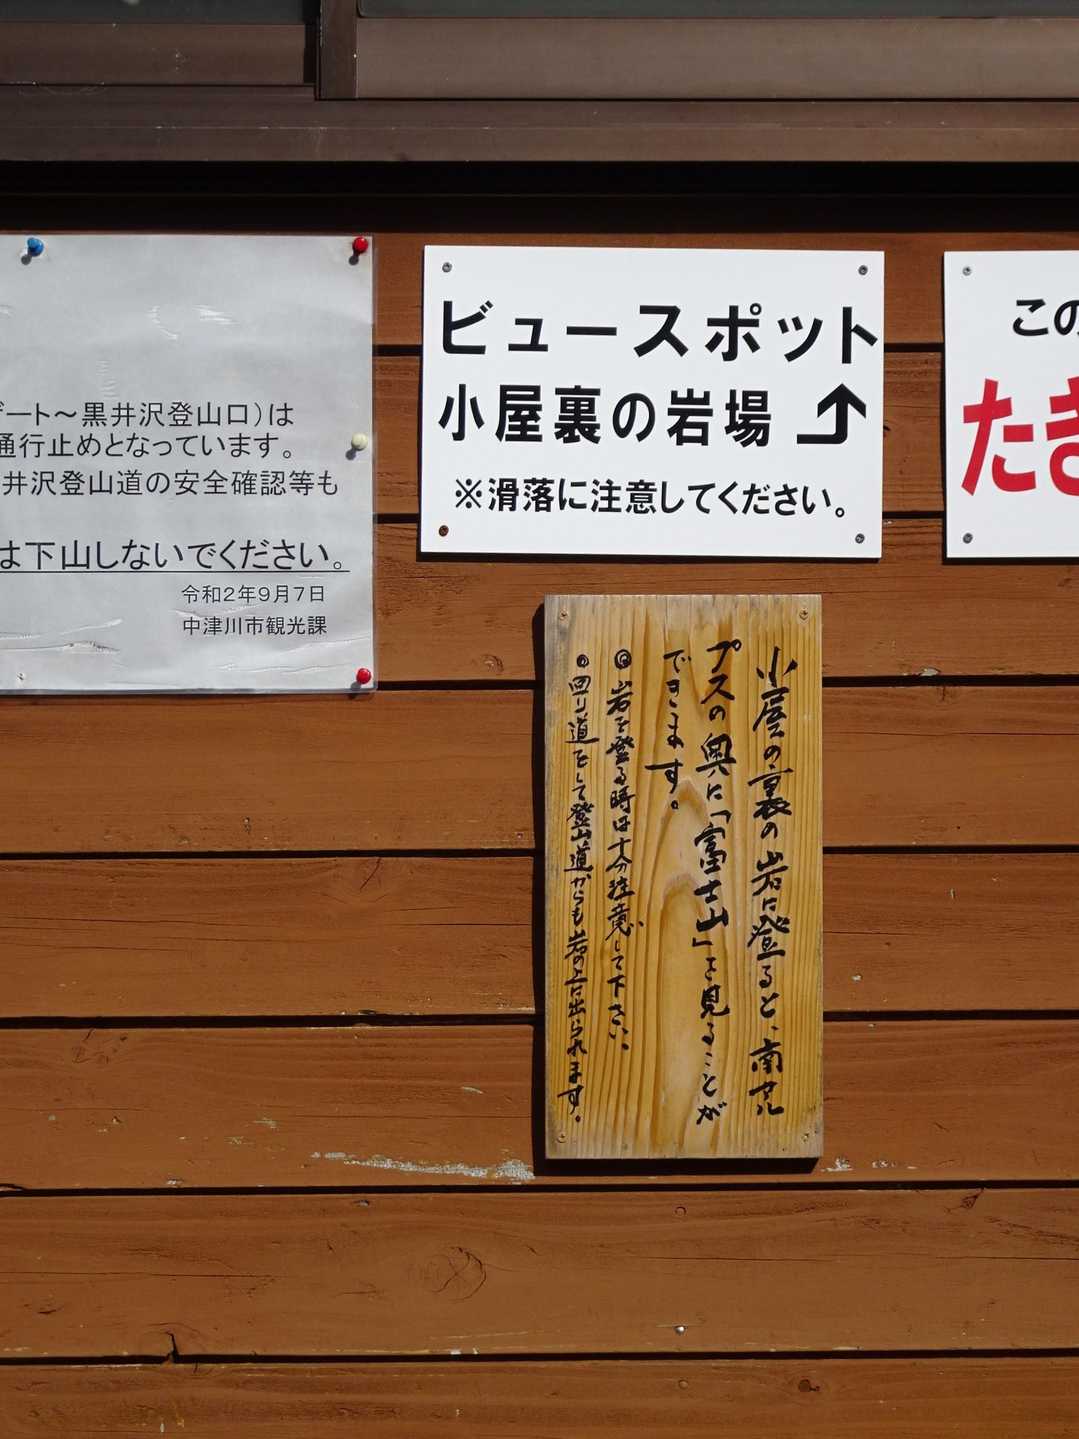 ゲート～黒井沢登山口）は
通行止めとなっています。
井沢登山道の安全確認等も
は下山しないでください。
令和2年9月7日
中津川市観光課
ビュースポット
小屋裏の岩場
※滑落に注意してください。
この
たき
小屋の裏の岩に登ると、南アル
プスの奥に「富士山」を見ることが
できます。
◎岩を登る時は十分注意して下さい。
◎回り道をして登山道からも岩の上に出られます。